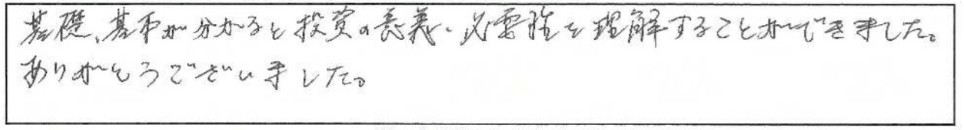 基礎、基本が分かると投資の意義・必要性を理解することができました。
ありがとうございました。